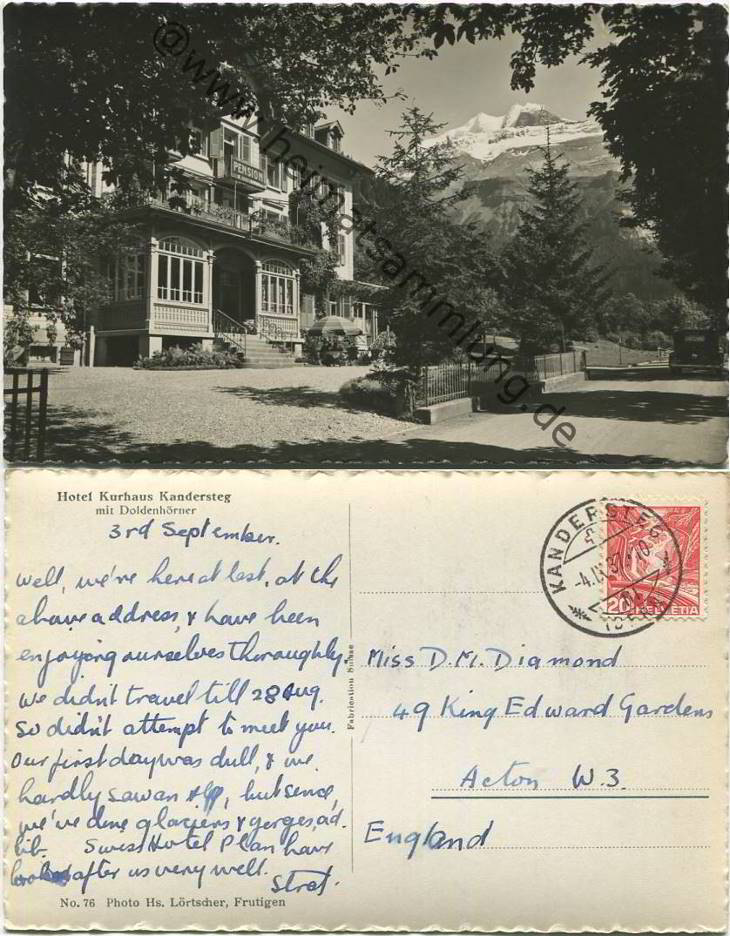 PENSION
© www.heimatsammlung.de
Hotel Kurhaus Kandersteg
mit Doldenhörner
3rd September.
Well, we're here at last, at the
above address, & have been
enjoying ourselves thoroughly.
We didn't travel till 28 Aug.
So didn't attempt to meet you.
Our first day was dull, & we
hardly saw an Alp, but since,
we've done glaciers & gorges, ad.
lib. Swiss Hotel Plan have
looked after us very well.
Strat.
No. 76 Photo Hs. Lörtscher, Frutigen
Fabrication Suisse
KANDERSTEG
20 HELVETIA
Miss D. M. Diamond
49 King Edward Gardens
Acton W.3.
England